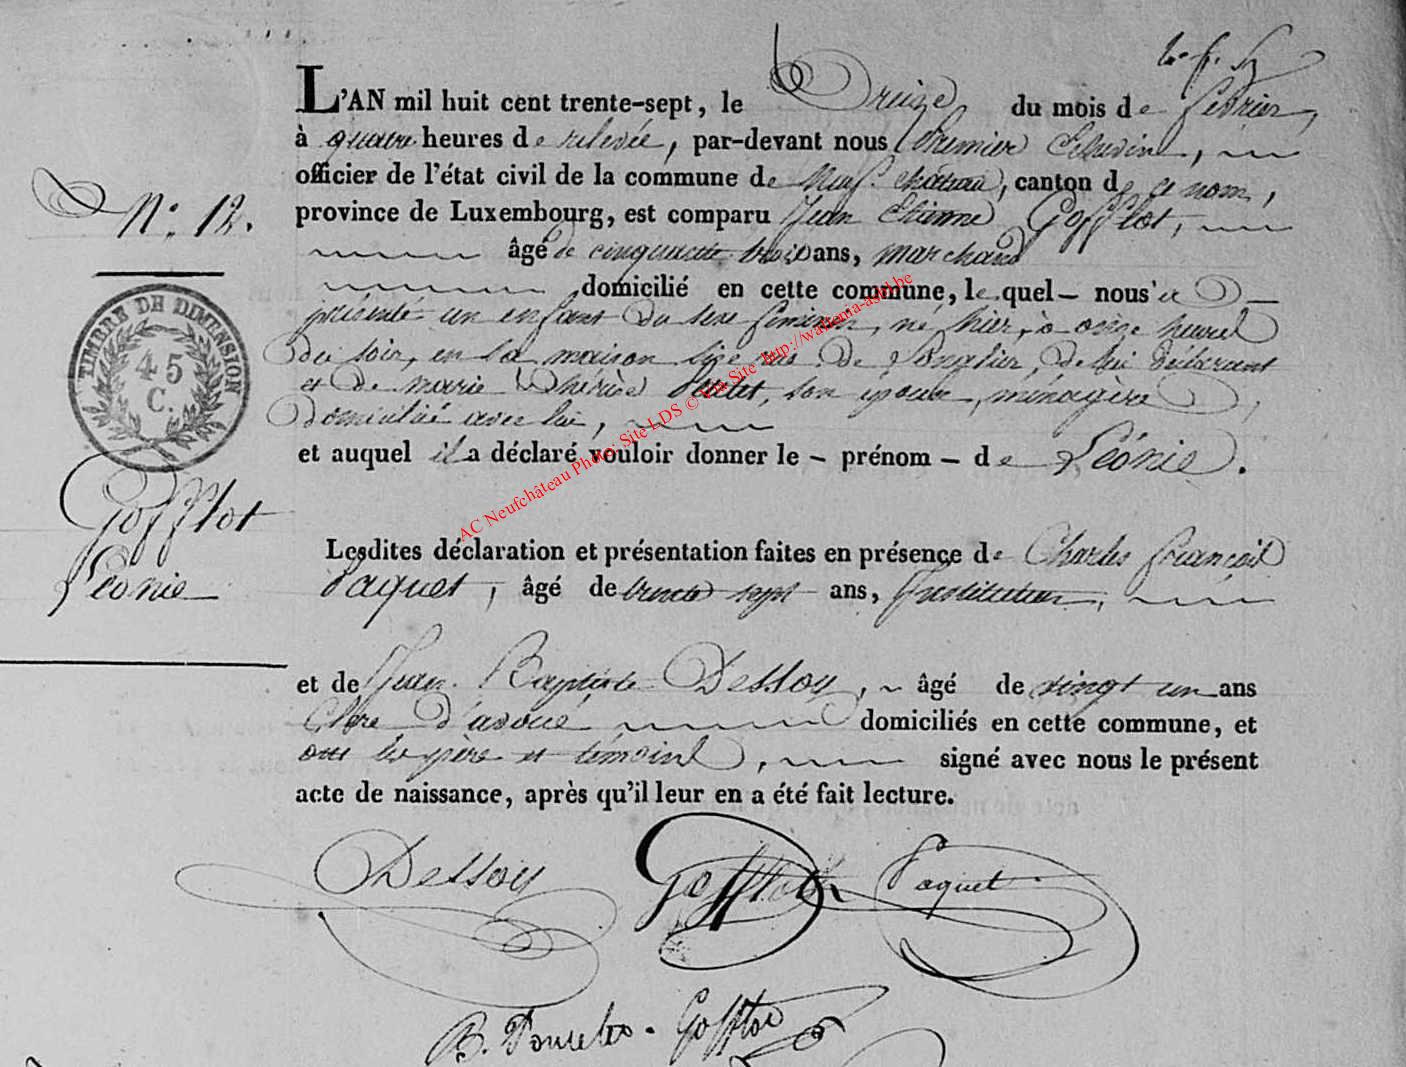 L'AN mil huit cent trente-sept, le Treize du mois de février,
à quatre heures de relevée, par-devant nous Premier Echevin,
officier de l'état civil de la commune de Neuf-château, canton de ce nom,
N.° 12.
province de Luxembourg, est comparu Jean Etienne Gofflot,
âgé de cinquante trois ans, marchand
domicilié en cette commune, lequel - nous a
TIMBRE DE DIMENSION
45
C.
présenté un enfant du sexe féminin, né hier, à onze heures
du soir, en sa maison sise rue de , de lui déclarant
et de marie Thérèse , son épouse, ménagère,
domiciliée avec lui,
et auquel il a déclaré vouloir donner le - prénom - de Léonie.
Gofflot
Léonie
Lesdites déclaration et présentation faites en présence de Charles françois
Paquet, âgé de trente sept ans, Instituteur,
et de Jean Baptiste Dessoy, âgé de vingt un ans
Clerc d'avoué domiciliés en cette commune, et
ont les père et témoins, signé avec nous le présent
acte de naissance, après qu'il leur en a été fait lecture.
Dessoy Gofflot Paquet
B. Gofflot
AC Neufchâteau Photo: Site LDS © Via Site http://waltania-asbl.be